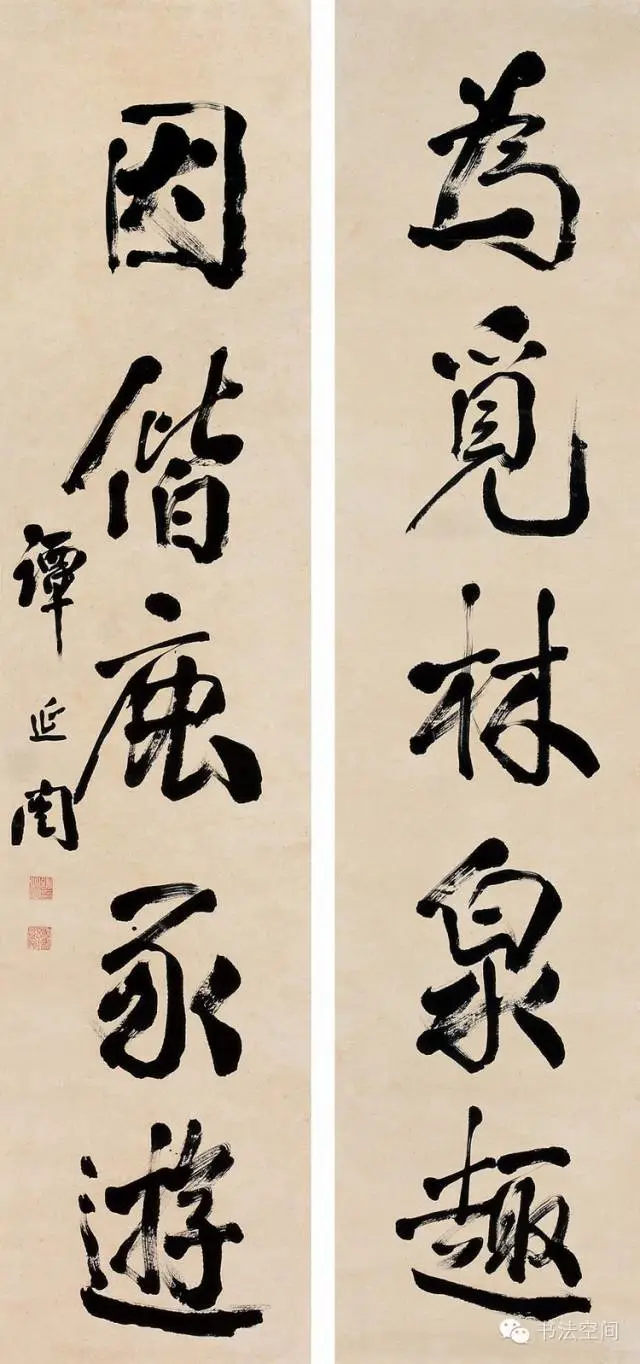 為覓林泉趣
因偕鹿豕遊
譚延闓
书法空间